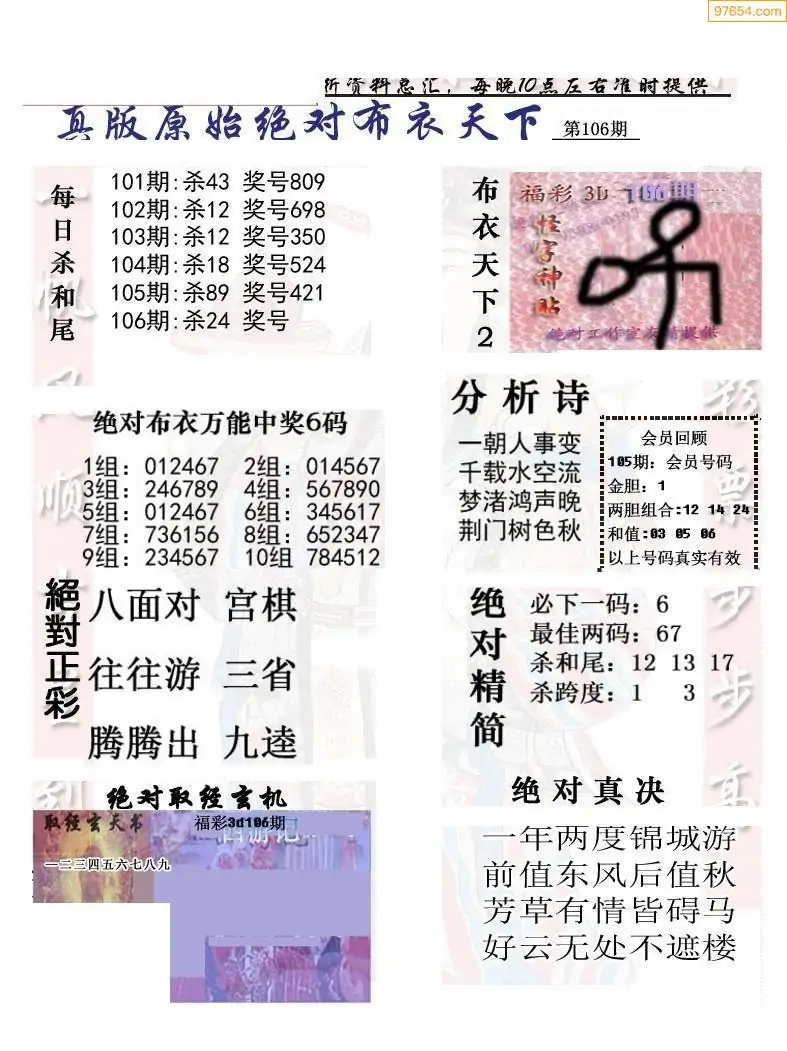 97654.com
所资料总汇，每晚10点左右准时提供
真版原始绝对布衣天下 第106期
每日杀和尾
101期:杀43 奖号809
102期:杀12 奖号698
103期:杀12 奖号350
104期:杀18 奖号524
105期:杀89 奖号421
106期:杀24 奖号
布衣天下2
福彩 3D 106期
怪字神贴
绝对工作室友情提供
绝对布衣万能中奖6码
1组：012467 2组：014567
3组：246789 4组：567890
5组：012467 6组：345617
7组：736156 8组：652347
9组：234567 10组 784512
分析诗
一朝人事变
千载水空流
梦渚鸿声晚
荆门树色秋
会员回顾
105期：会员号码
金胆：1
两胆组合:12 14 24
和值:03 05 06
以上号码真实有效
絕對正彩
八面对 宫棋
往往游 三省
腾腾出 九逵
绝对精简
必下一码：6
最佳两码：67
杀和尾：12 13 17
杀跨度：1 3
绝对取经玄机
取经玄天书
福彩3d106期
西游记
一二三四五六七八九
绝对真决
一年两度锦城游
前值东风后值秋
芳草有情皆碍马
好云无处不遮楼